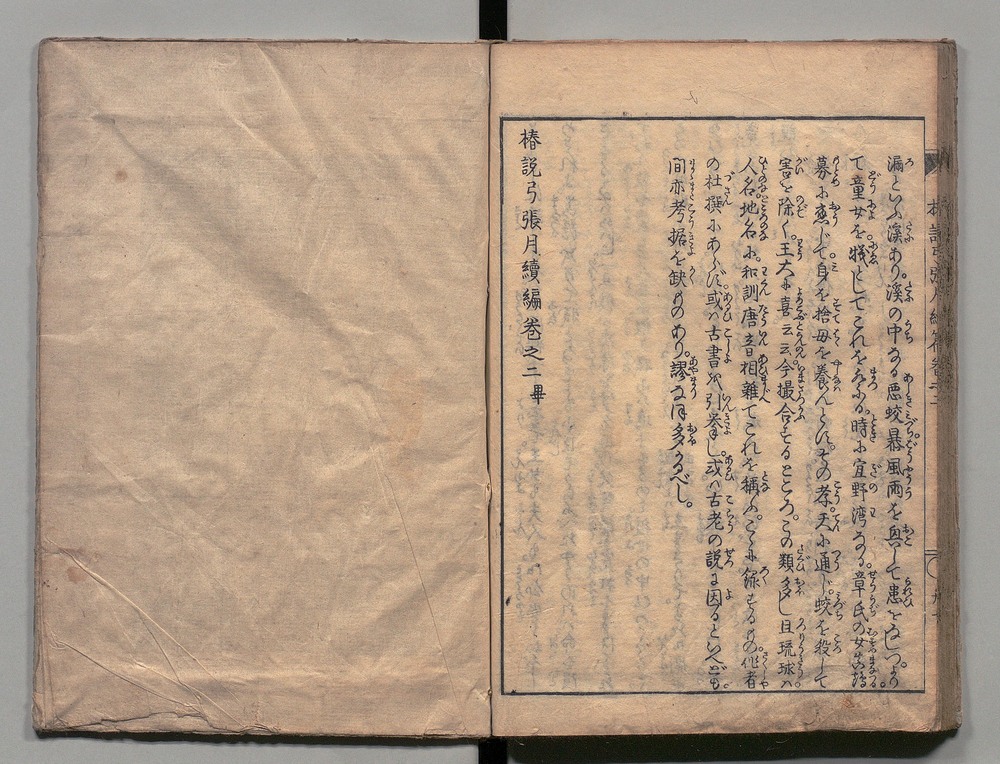 漏といふ渓あり。渓の中なる悪蛟暴風雨を興して患をなしつ。よ
て童女を犠としてこれをまつる。時に宜野湾なる章氏の女真鶴
募に応じて身を捨母を養んとす。その孝天に通じ蛟を殺して
害を除く。王大に喜云云。今撮合するところ。この類多し。且琉球ハ
人名地名に和訓唐音相雑てこれを稱ふ。こゝに録するもの。作者
の杜撰にあらず。或ハ古書を引挙し。或ハ古老の説に因るといへども。
間亦考据を缺ものあり。謬なほ多かるべし。
椿説弓張月續編巻之二畢